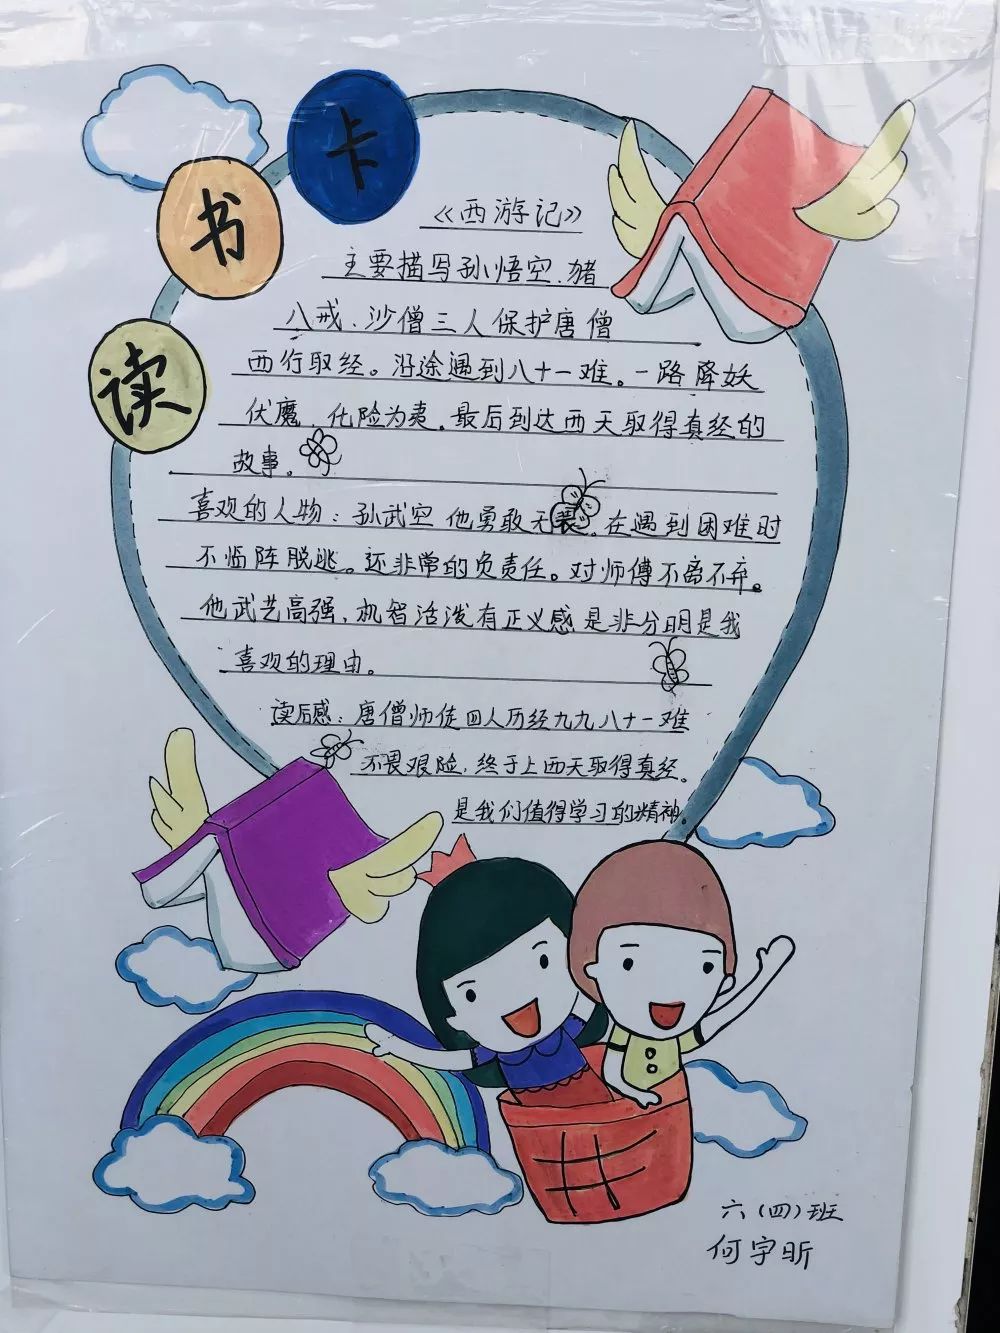 读书卡
《西游记》
主要描写孙悟空、猪
八戒、沙僧三人保护唐僧
西行取经。沿途遇到八十一难。一路降妖
伏魔 化险为夷。最后到达西天取得真经的
故事。
喜观的人物：孙武空 他勇敢无。在遇到困难时
不临阵脱逃。还非常的负责任。对师傅不离不弃。
他武艺高强、机智活泼有正义感是非分明是我
喜观的理由。
读后感：唐僧师徒四人历经九九八十一难
不畏艰险，终于上西天取得真经。
是我们值得学习的精神。
六（四）班
何宇昕